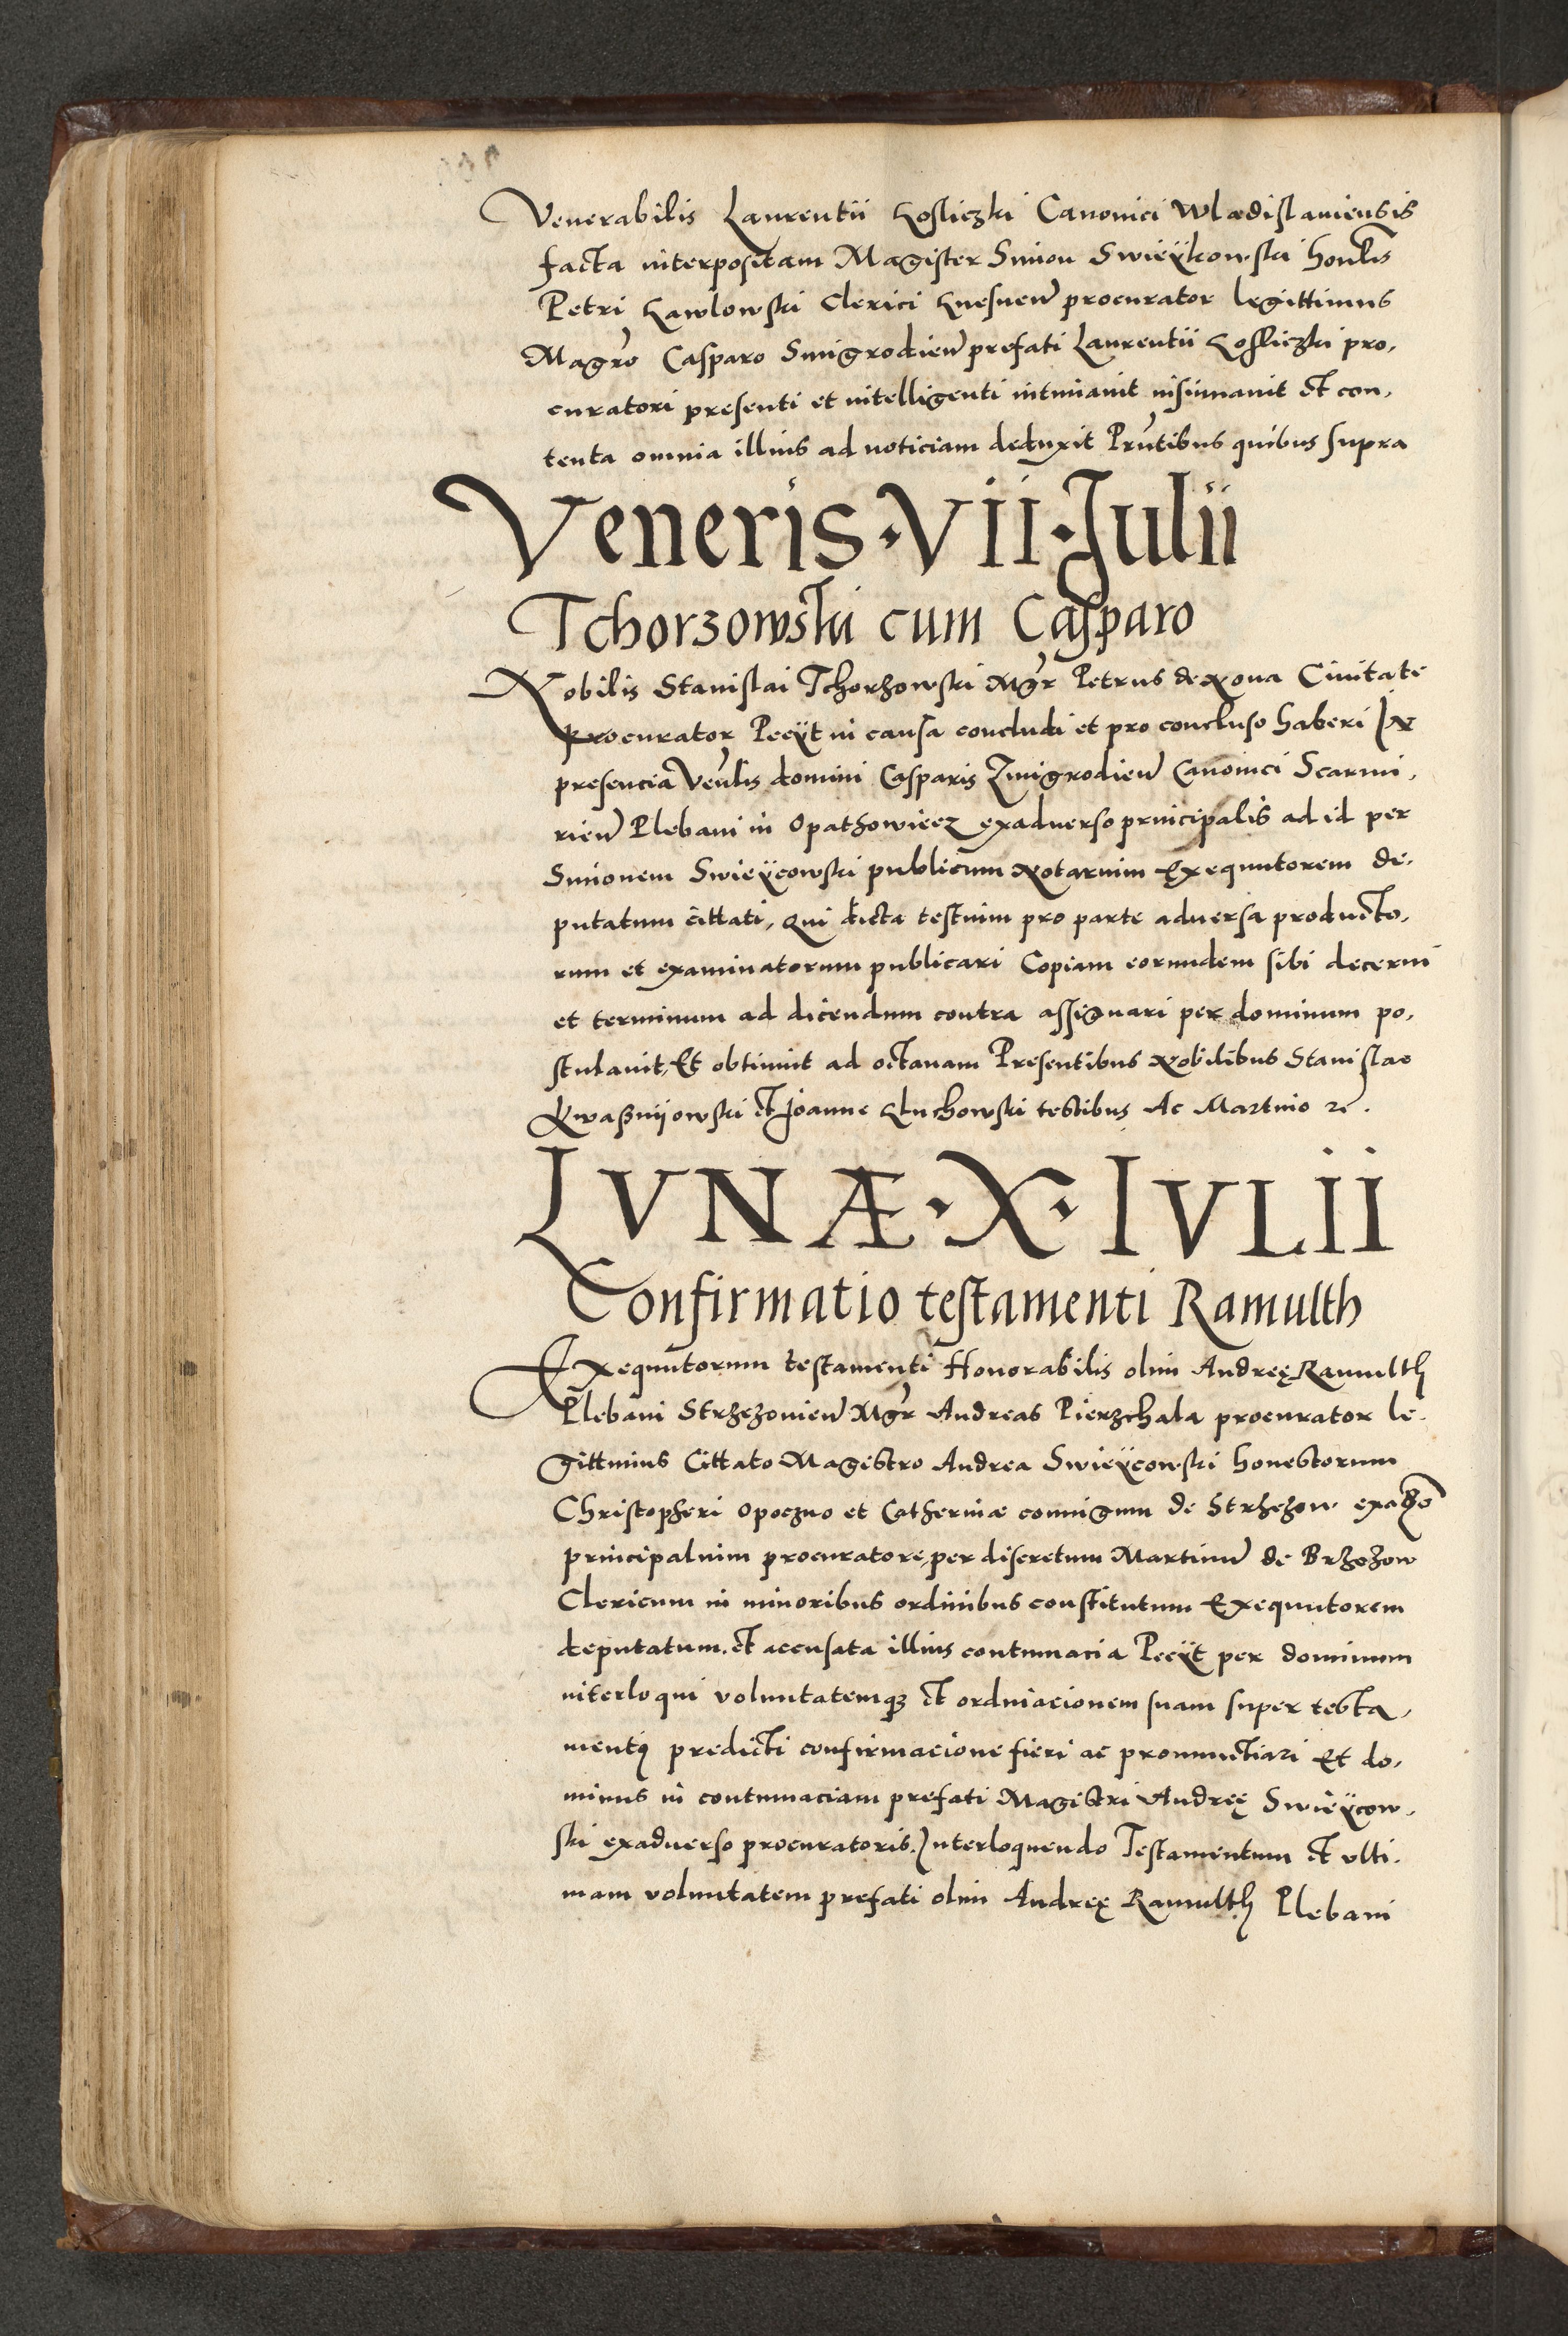 Venerabilis Laurentii Gosliczki Canonici Wladislauiensis
facta interpositam Magister Simon Swieÿkowski honblis
Petri Gawlowski Clerici Gnesnen procurator legittimus
Magro Casparo Smigrodien prefati Laurentii Gosliczki pro,
curatori presenti et intelligenti intimauit insinuauit et con,
tenta omnia illius ad noticiam deduxit Prntibus quibus supra
Veneris · VII · Julii
Tchorzowski cum Casparo
Nobilis Stanislai Tchorzowski Mgr Petrus de Noua Ciuitate
procurator Peciit in causa concludi et pro concluso haberi In
presencia Venlis domini Casparis Zmigrodien Canonici Scarmi,
rien Plebani in Opathowiecz exaduerso principalis ad id per
Simonem Swieÿcowski publicum Notarium Exequutorem de,
putatum cittati, qui dicta testium pro parte aduersa producto,
rum et examinatorum publicari Copiam eorundem sibi decerni
et terminum ad dicendum contra assignari per dominum po,
stulauit, Et obtinuit ad octauam Presentibus Nobilibus Stanislao
Kwasniiowski et Joanne Gluchowski testibus Ac Martino rc.
LVNÆ · X · IVLII
Confirmatio testamenti Ramulth
Exequutorum testamenti Honorabilis olim Andreę Ramulth
Plebani Strzezouien Mgr Andreas Pierzchala procurator le,
gittimus Cittato Magistro Andrea Swieÿcowski honestorum
Christopheri Opoczno et Catherinæ coniugum de Strzezow exadso
principalium procuratore, per discretum Martinum de Brzozow
Clericum in minoribus ordinibus constitutum Exequutorem
deputatum. et accusata illius contumacia Peciit per dominum
interloqui voluntatemqz et ordinacionem suam super testa,
menti predicti confirmacione fieri ac pronunctiari Et do,
minus in contumaciam prefati Magistri Andreę Swieÿcow,
ski exaduerso procuratoris. Interloquendo Testamentum et vlti,
mam voluntatem prefati olim Andreę Ramulth Plebani